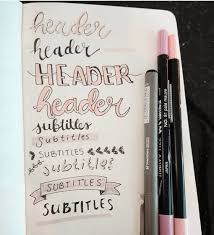 header
header
HEADER
header
subtitles
Subtitles
SUBTITLES
subtitle!
SUBTITLES
SUBTITLES